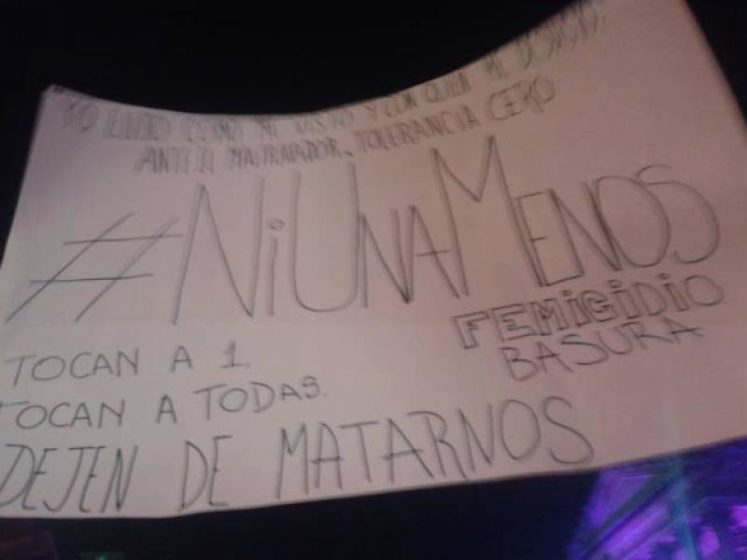 YO ELIJO COMO ME VISTO Y CON QUIEN ME DESVISTO,
ANTE EL MALTRATADOR, TOLERANCIA CERO
#NiUNAMENOS
FEMIGIDIO
BASURA
TOCAN A 1
TOCAN A TODAS.
DEJEN DE MATARNOS